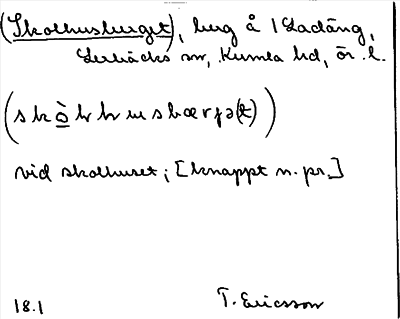 (Skolhusberget), berg å 1 Ladäng,
Lerbäcks sn, Kumla hd, ör. l.
(skò̲lhusbærjə(t))
vid skolhuset; [knappt n. pr.]
18.1 T. Ericsson